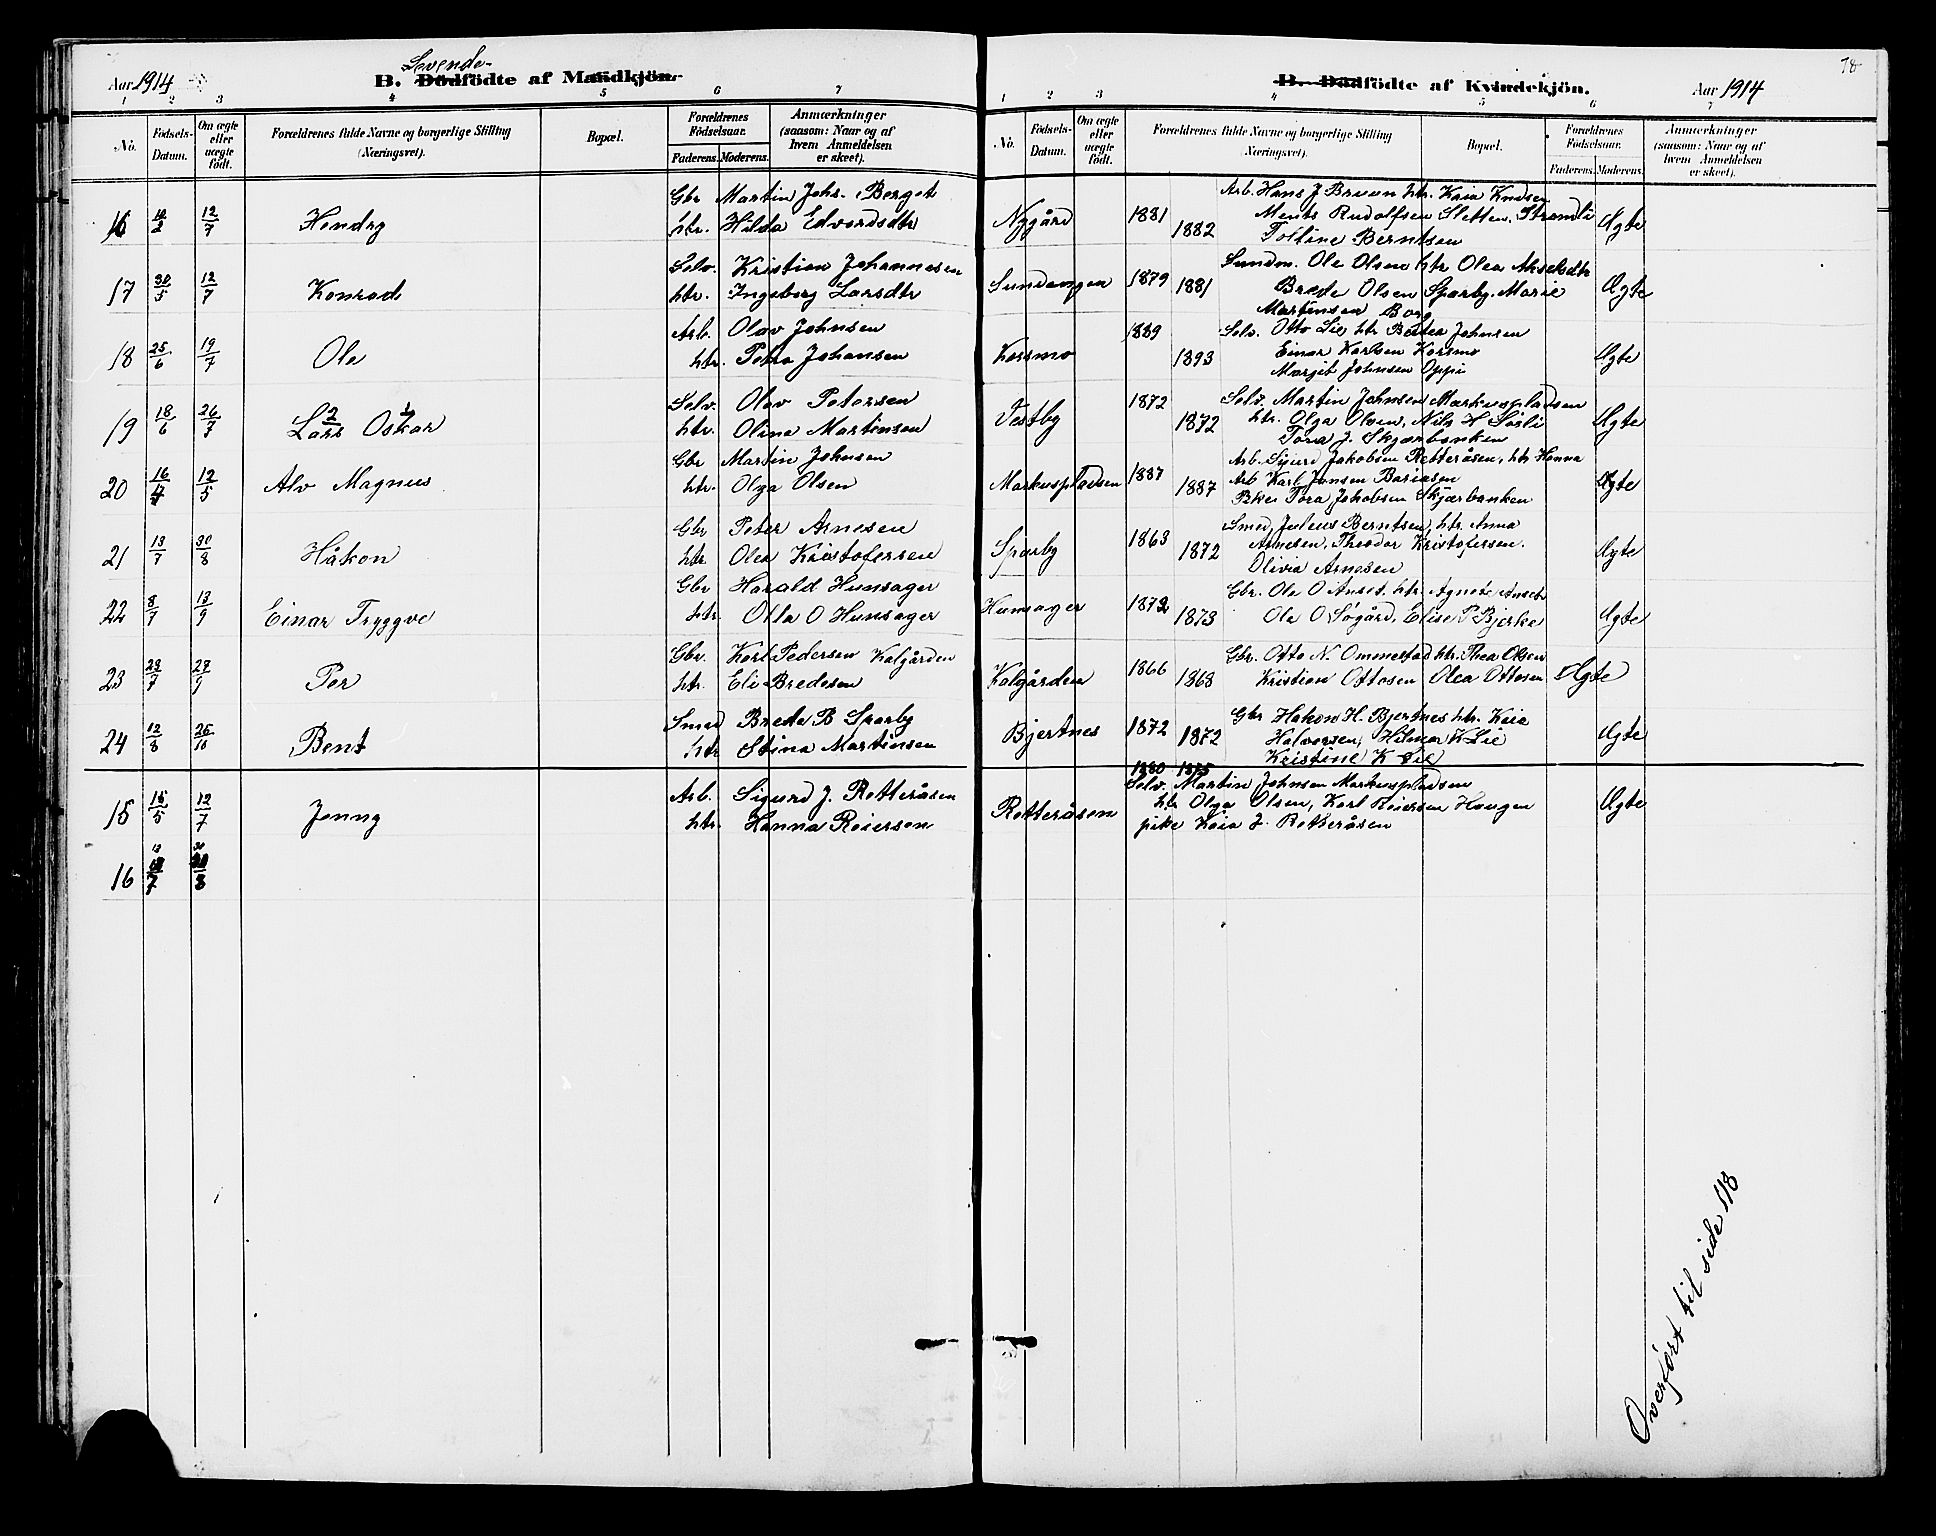 Levende-
Aar 1914
B. Dödfödte af Mandkjön.
1 2 3 4 5 6 7
No.
Födsels-
Datum.
Om ægte
eller
uægte
födt.
Forældrenes fulde Navne og borgerlige Stilling
(Næringsvei).
Bopæl.
Forældrenes
Födselsaar.
Faderens. Moderens.
Anmærkninger
(saasom: Naar og af
hvem Anmeldelsen
er skeet).
78
B. Dödfödte af Kvindekjön.
Aar 1914
1 2 3 4 5 6 7
No.
Födsels-
Datum.
Om ægte
eller
uægte
födt.
Forældrenes fulde Navne og borgerlige Stilling
(Næringsvei).
Bopæl.
Forældrenes
Födselsaar.
Faderens. Moderens.
Anmærkninger
(saasom: Naar og af
hvem Anmeldelsen
er skeet).
Gbr Martin Johs. Berget
16 12/7 Hendry htr. Hilda Edvardsdtr Nygård 1881 1882
Arb. Hans J Bruun htr. Kaia Knudsen
Ments Rudolfsen Sletten, Strandli
Toltine Berntsen
Ægte
Selv. Kristian Johannesen
17 30/5 12/7 Konrad htr. Ingeborg Larsdtr Sundengen 1879 1881
Sundm. Ole Olsen htr Olea Akselsdtr
Brede Olsen Sparby. Marie
Martinsen Borg
Ægte
Arb. Olav Johnsen
18 25/6 19/7 Ole htr. Petra Johansen Korsmo 1889 1893
Selv. Otto Lie htr Bertea Johnsen
Einar Karlsen Korsmo
Margit Johnsen Oppi
Ægte
Selv. Olav Petersen
19 18/6 26/7 Lars 2 Oskar 1 htr. Olina Martinsen Vestby 1872 1872
Selv. Martin Johnsen Markuspladsen
htr. Olga Olsen, Nils H Sörli
Tora J. Skjærbanken
Ægte
Gbr Martin Johnsen
20 16/4 12/5 Alv Magnus htr. Olga Olsen Markuspladsen 1887 1887
Arb. Sigurd Jakobsen Retteråsen, htr Hanna
Arb Karl Jansen Bariåsen
Pike Tora Jakobsen Skjærbanken
Ægte
Gbr Peter Arnesen
21 13/7 30/8 Håkon htr. Olea Kristofersen Sparby 1863 1872
Smed, Julius Berntsen, htr. Anna
Arnesen, Theodor Kristofersen.
Olivia Arnesen
Ægte
Gbr Harald Hunsager
22 8/7 13/9 Einar Tryggve htr. Otla O Hunsager Hunsager 1872 1873
Gbr. Ole O Anset. htr. Agnete Anseth
Ole O Søgård, Elise P Bjerke
Ægte
Gbr. Karl Pedersen Kalgården
23 29/7 27/9 Per htr. Eli Bredesen Kolgården 1866 1868
Gbr. Otto N. Ommestad htr. Thea Olsen
Kristian Ottosen Olea Ottosen
Ægte
Smed Brede B Sparby
24 12/8 25/10 Bent htr Stina Martinsen Bjertnes 1872 1872
Gbr Hakon H. Bjertnes htr. Kaia
Halvorsen, Hilmar K Lie
Kristine K Lie
Ægte
1880 1885
Arb. Sigurd J. Retteråsen
15 15/5 12/7 Jenny htr. Hanna Reiersen Retteråsen
Selv. Martin Johnsen Markuspladsen
htr Olga Olsen, Karl Reiersen Haugen
pike Kaia J. Retteråsen
Ægte
16 13/7 30/8
Overfört til side 118